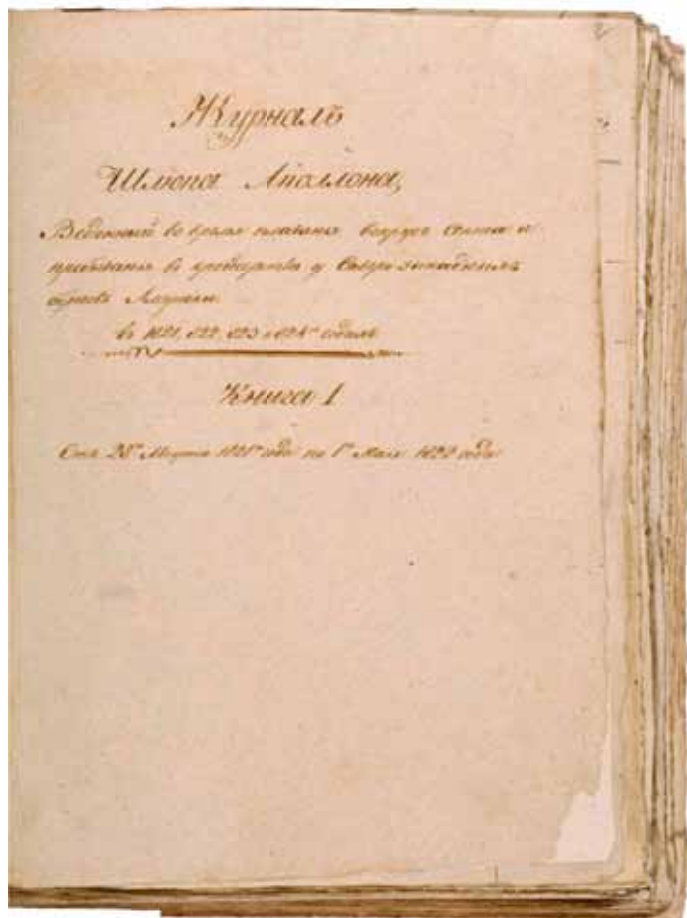 2
Журналъ
Шлюпа Аполлона,
Веденный во время плаванія вокругъ света и
пребыванія в крейсерстве у Северозападныхъ
береговъ Америки
в 1821, 822, 823 и 824м годахъ
Книга 1
Съ 28го Марта 1821го года по 1е Мая 1822 года